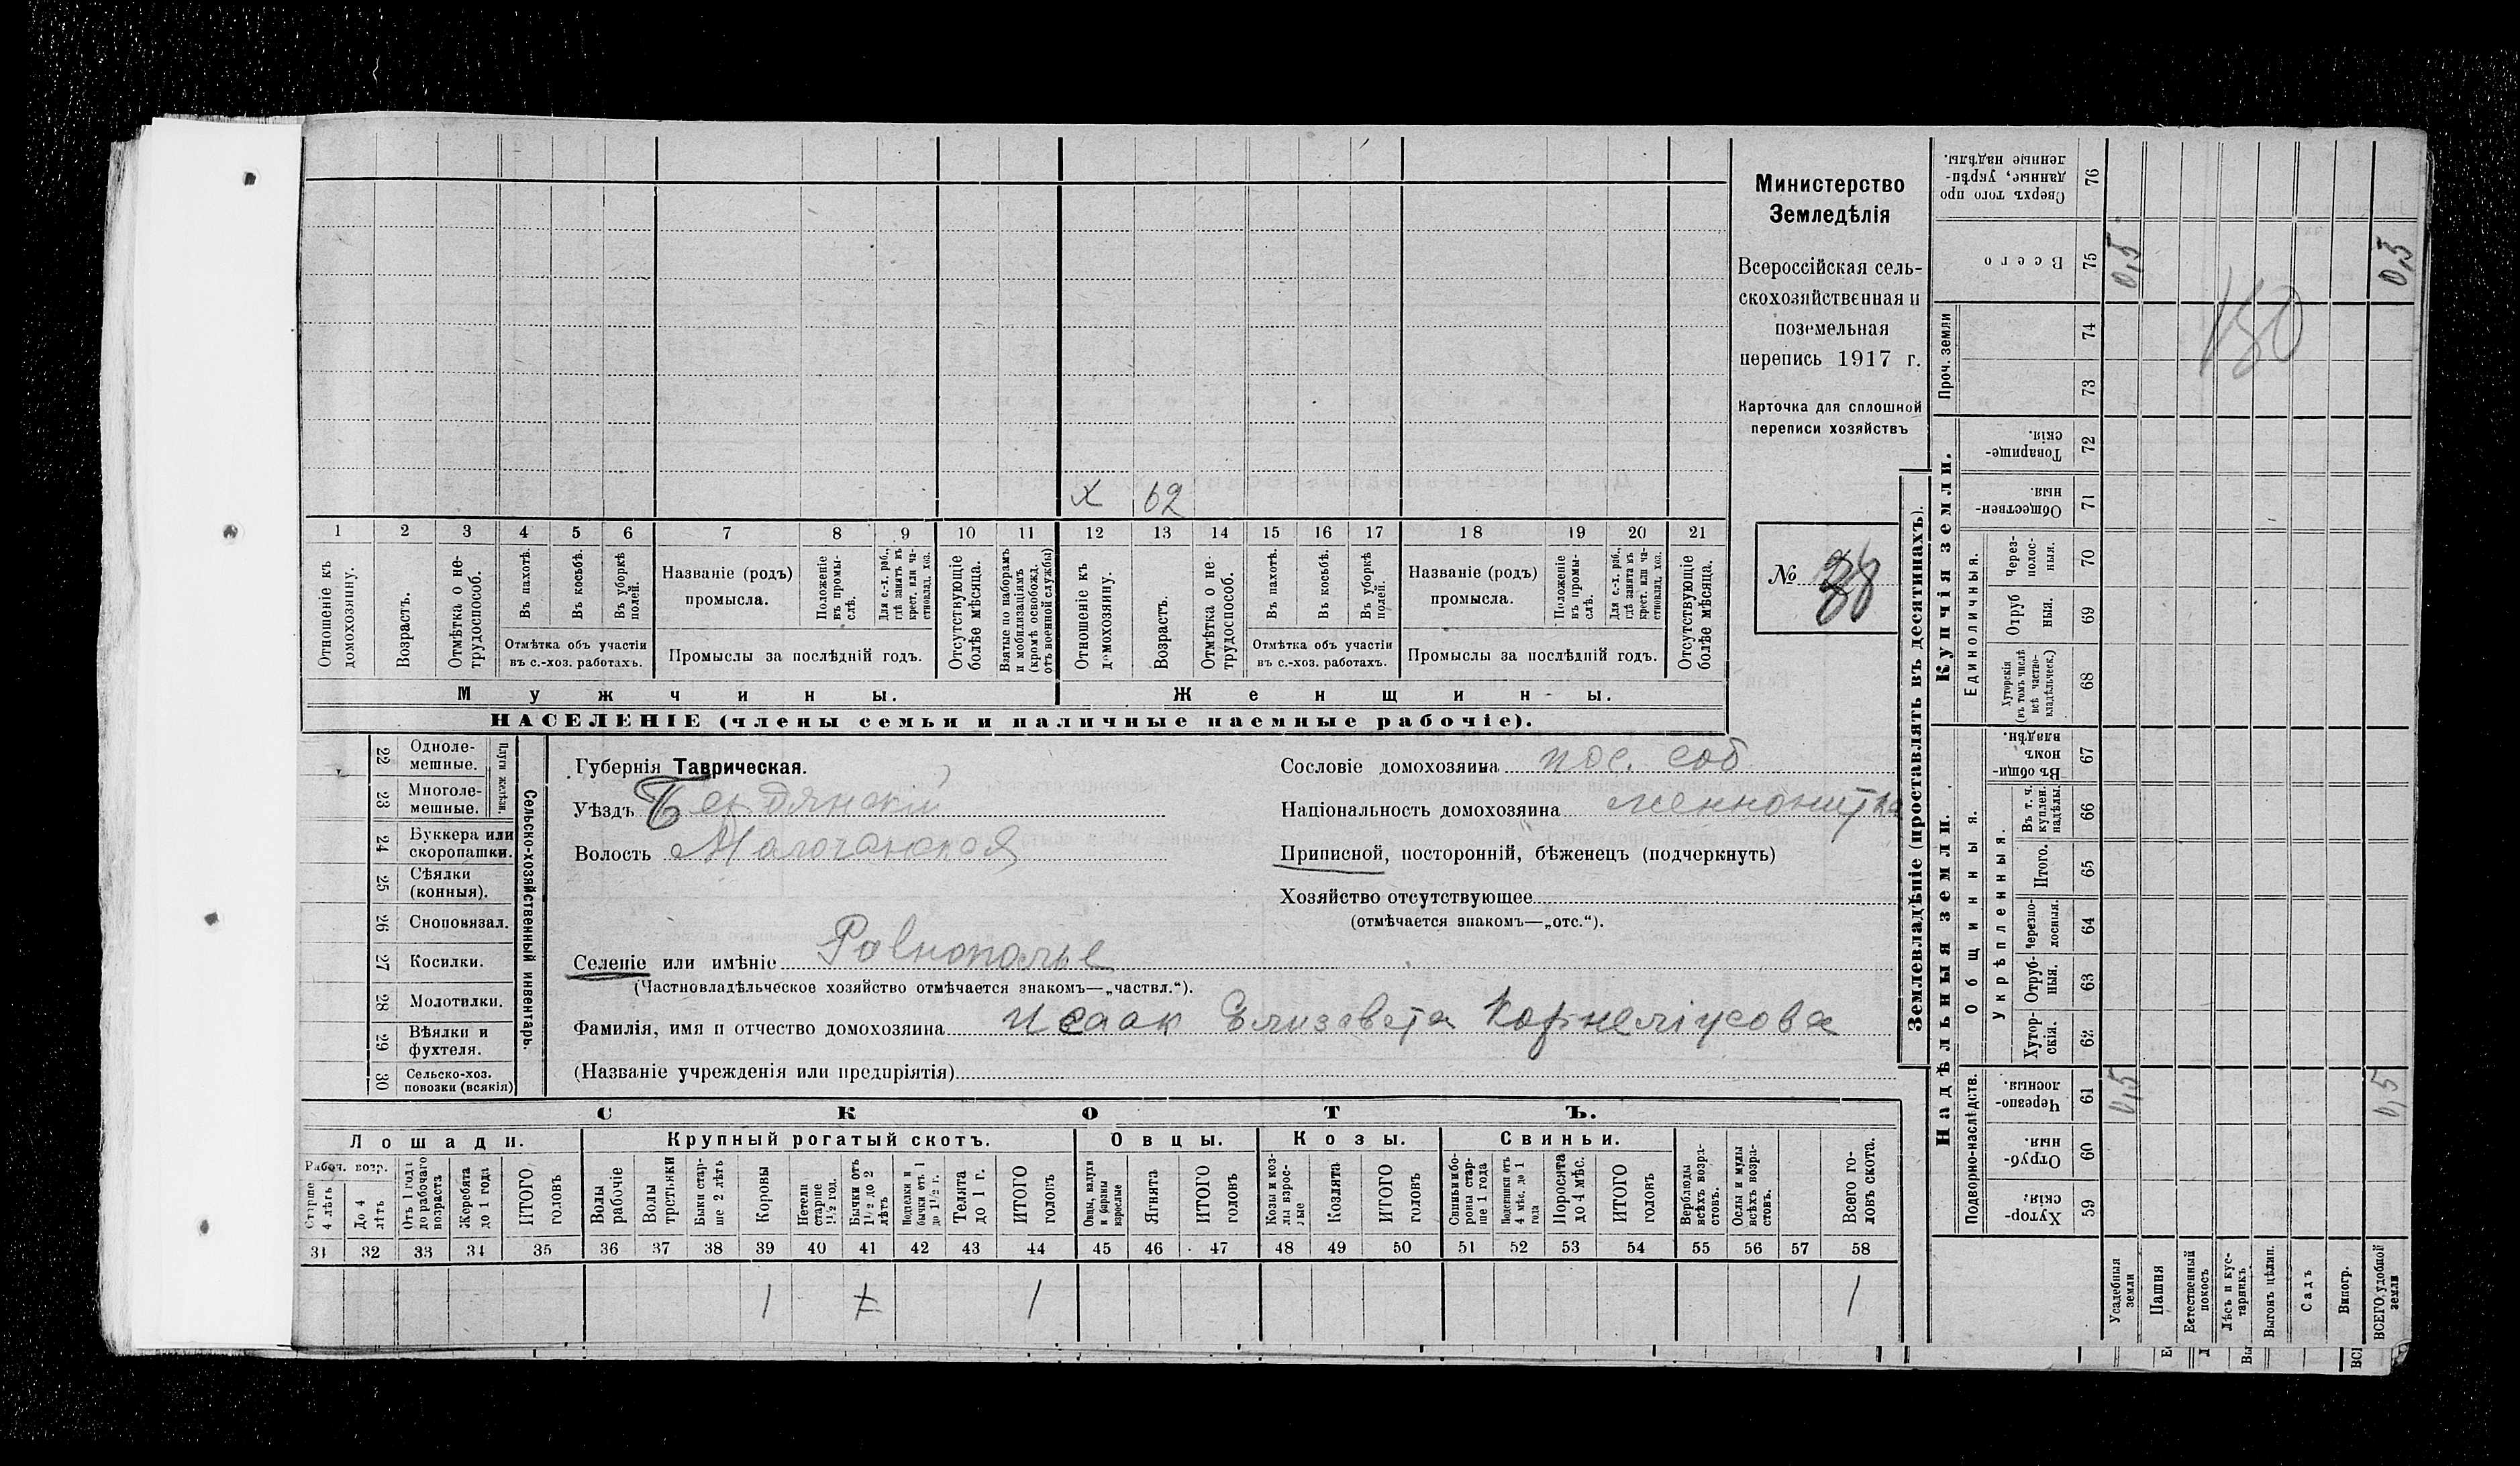 Министерство
Земледѣлія
Всероссійская сель-
скохозяйственная и
поземельная
перепись 1917 г.
Карточка для сплошной
переписи хозяйствъ
№ 38
х 62
1 2 3 4 5 6 7 8 9 10 11 12 13 14 15 16 17 18 19 20 21
Отношеніе къ домохозяину.
Возрастъ.
Отмѣтка о не-трудоспособ.
Въ пахотѣ.
Въ косьбѣ.
Въ уборкѣ полей.
Отмѣтка объ участіи
въ с.-хоз. работахъ.
Названіе (родъ)
промысла.
Положеніе въ промы-слѣ.
Для с.-х. раб., гдѣ занятъ въ крест. или ча-стновлад. хоз.
Промыслы за послѣдній годъ.
Отсутствующіе болѣе мѣсяца.
Взятые по наборамъ и мобилизаціямъ (кромѣ освобожд. отъ военной службы)
Отношеніе къ домохозяину.
Возрастъ.
Отмѣтка о не-трудоспособ.
Въ пахотѣ.
Въ косьбѣ.
Въ уборкѣ полей.
Отмѣтка объ участіи
въ с.-хоз. работахъ.
Названіе (родъ)
промысла.
Положеніе въ промы-слѣ.
Для с.-х. раб., гдѣ занята въ крест. или ча-стновлад. хоз.
Промыслы за послѣдній годъ.
Отсутствующіе болѣе мѣсяца.
Мужчины.
Женщины.
НАСЕЛЕНІЕ (члены семьи и наличные наемные рабочіе).
Сельско-хозяйственный инвентарь.
Плуги желѣзн.
22 Одноле-мешные.
23 Многоле-мешные.
24 Буккера или скоропашки.
25 Сѣялки (конныя).
26 Сноповязал.
27 Косилки.
28 Молотилки.
29 Вѣялки и фухтеля.
30 Сельско-хоз. повозки (всякія)
Губернія Таврическая.
Уѣздъ Бердянскій
Волость Молочанская
Селеніе или имѣніе Ровнополье
(Частновладѣльческое хозяйство отмѣчается знакомъ—„частвл.“).
Фамилія, имя и отчество домохозяина Исаак Елизавета Корнеліусова
(Названіе учрежденія или предпріятія)
Сословіе домохозяина пос. соб
Національность домохозяина меннонитка
Приписной, посторонній, бѣженецъ (подчеркнуть)
Хозяйство отсутствующее
(отмѣчается знакомъ—„отс.“).
СКОТЪ.
Лошади.
Крупный рогатый скотъ.
Овцы.
Козы.
Свиньи.
Рабоч. возр.
Старше 4 лѣтъ
До 4 лѣтъ
Отъ 1 года до рабочаго возраста
Жеребята до 1 года
ИТОГО головъ
Волы рабочіе
Волы третьяки
Быки стар-ше 2 лѣтъ
Коровы
Нетели старше 1½ год.
Бычки отъ 1½ до 2 лѣтъ
Подтелки и бычки отъ 1 до 1½ г.
Телята до 1 г.
ИТОГО головъ
Овцы, валухи и бараны взрослые
Ягнята
ИТОГО головъ
Козы и коз-лы взрос-лые
Козлята
ИТОГО головъ
Свиньи и бо-ровы стар-ше 1 года
Подсвинки отъ 4 мѣс. до 1 года
Поросята до 4 мѣс.
ИТОГО головъ
Верблюды всѣхъ возра-стовъ.
Ослы и мулы всѣхъ возра-стовъ.
Всего го-ловъ скота.
31 32 33 34 35 36 37 38 39 40 41 42 43 44 45 46 47 48 49 50 51 52 53 54 55 56 57 58
1 1 1
Землевладѣніе (проставлять въ десятинахъ).
Купчія земли.
Надѣльныя земли.
Сверхъ того про-данные, укрѣп-ленные надѣлы. 76
Всего 75
Проч. земли 74 73
Товарище-скія. 72
Обществен-ныя. 71
Единоличныя.
Через-полос-ныя. 70
Отруб-ныя. 69
Хуторскія (въ томъ числѣ всѣ частно-владѣльческ.) 68
Общинныя.
Въ общи-номъ владѣн. 67
Укрѣпленныя.
Въ т. ч. куплен. надѣлы. 66
Итого. 65
Черезпо-лосныя. 64
Отруб-ныя. 63
Хутор-скія. 62
Подворно-наслѣдств.
Черезпо-лосныя. 61
Отруб-ныя. 60
Хутор-скія. 59
Усадебныя земли
Пашня
Естественный покосъ
Лѣсъ и кус-тарникъ
Выгонъ цѣлин.
Садъ
Виногр.
ВСЕГО удобной земли
0,5 0,5
150
0,5 0,5